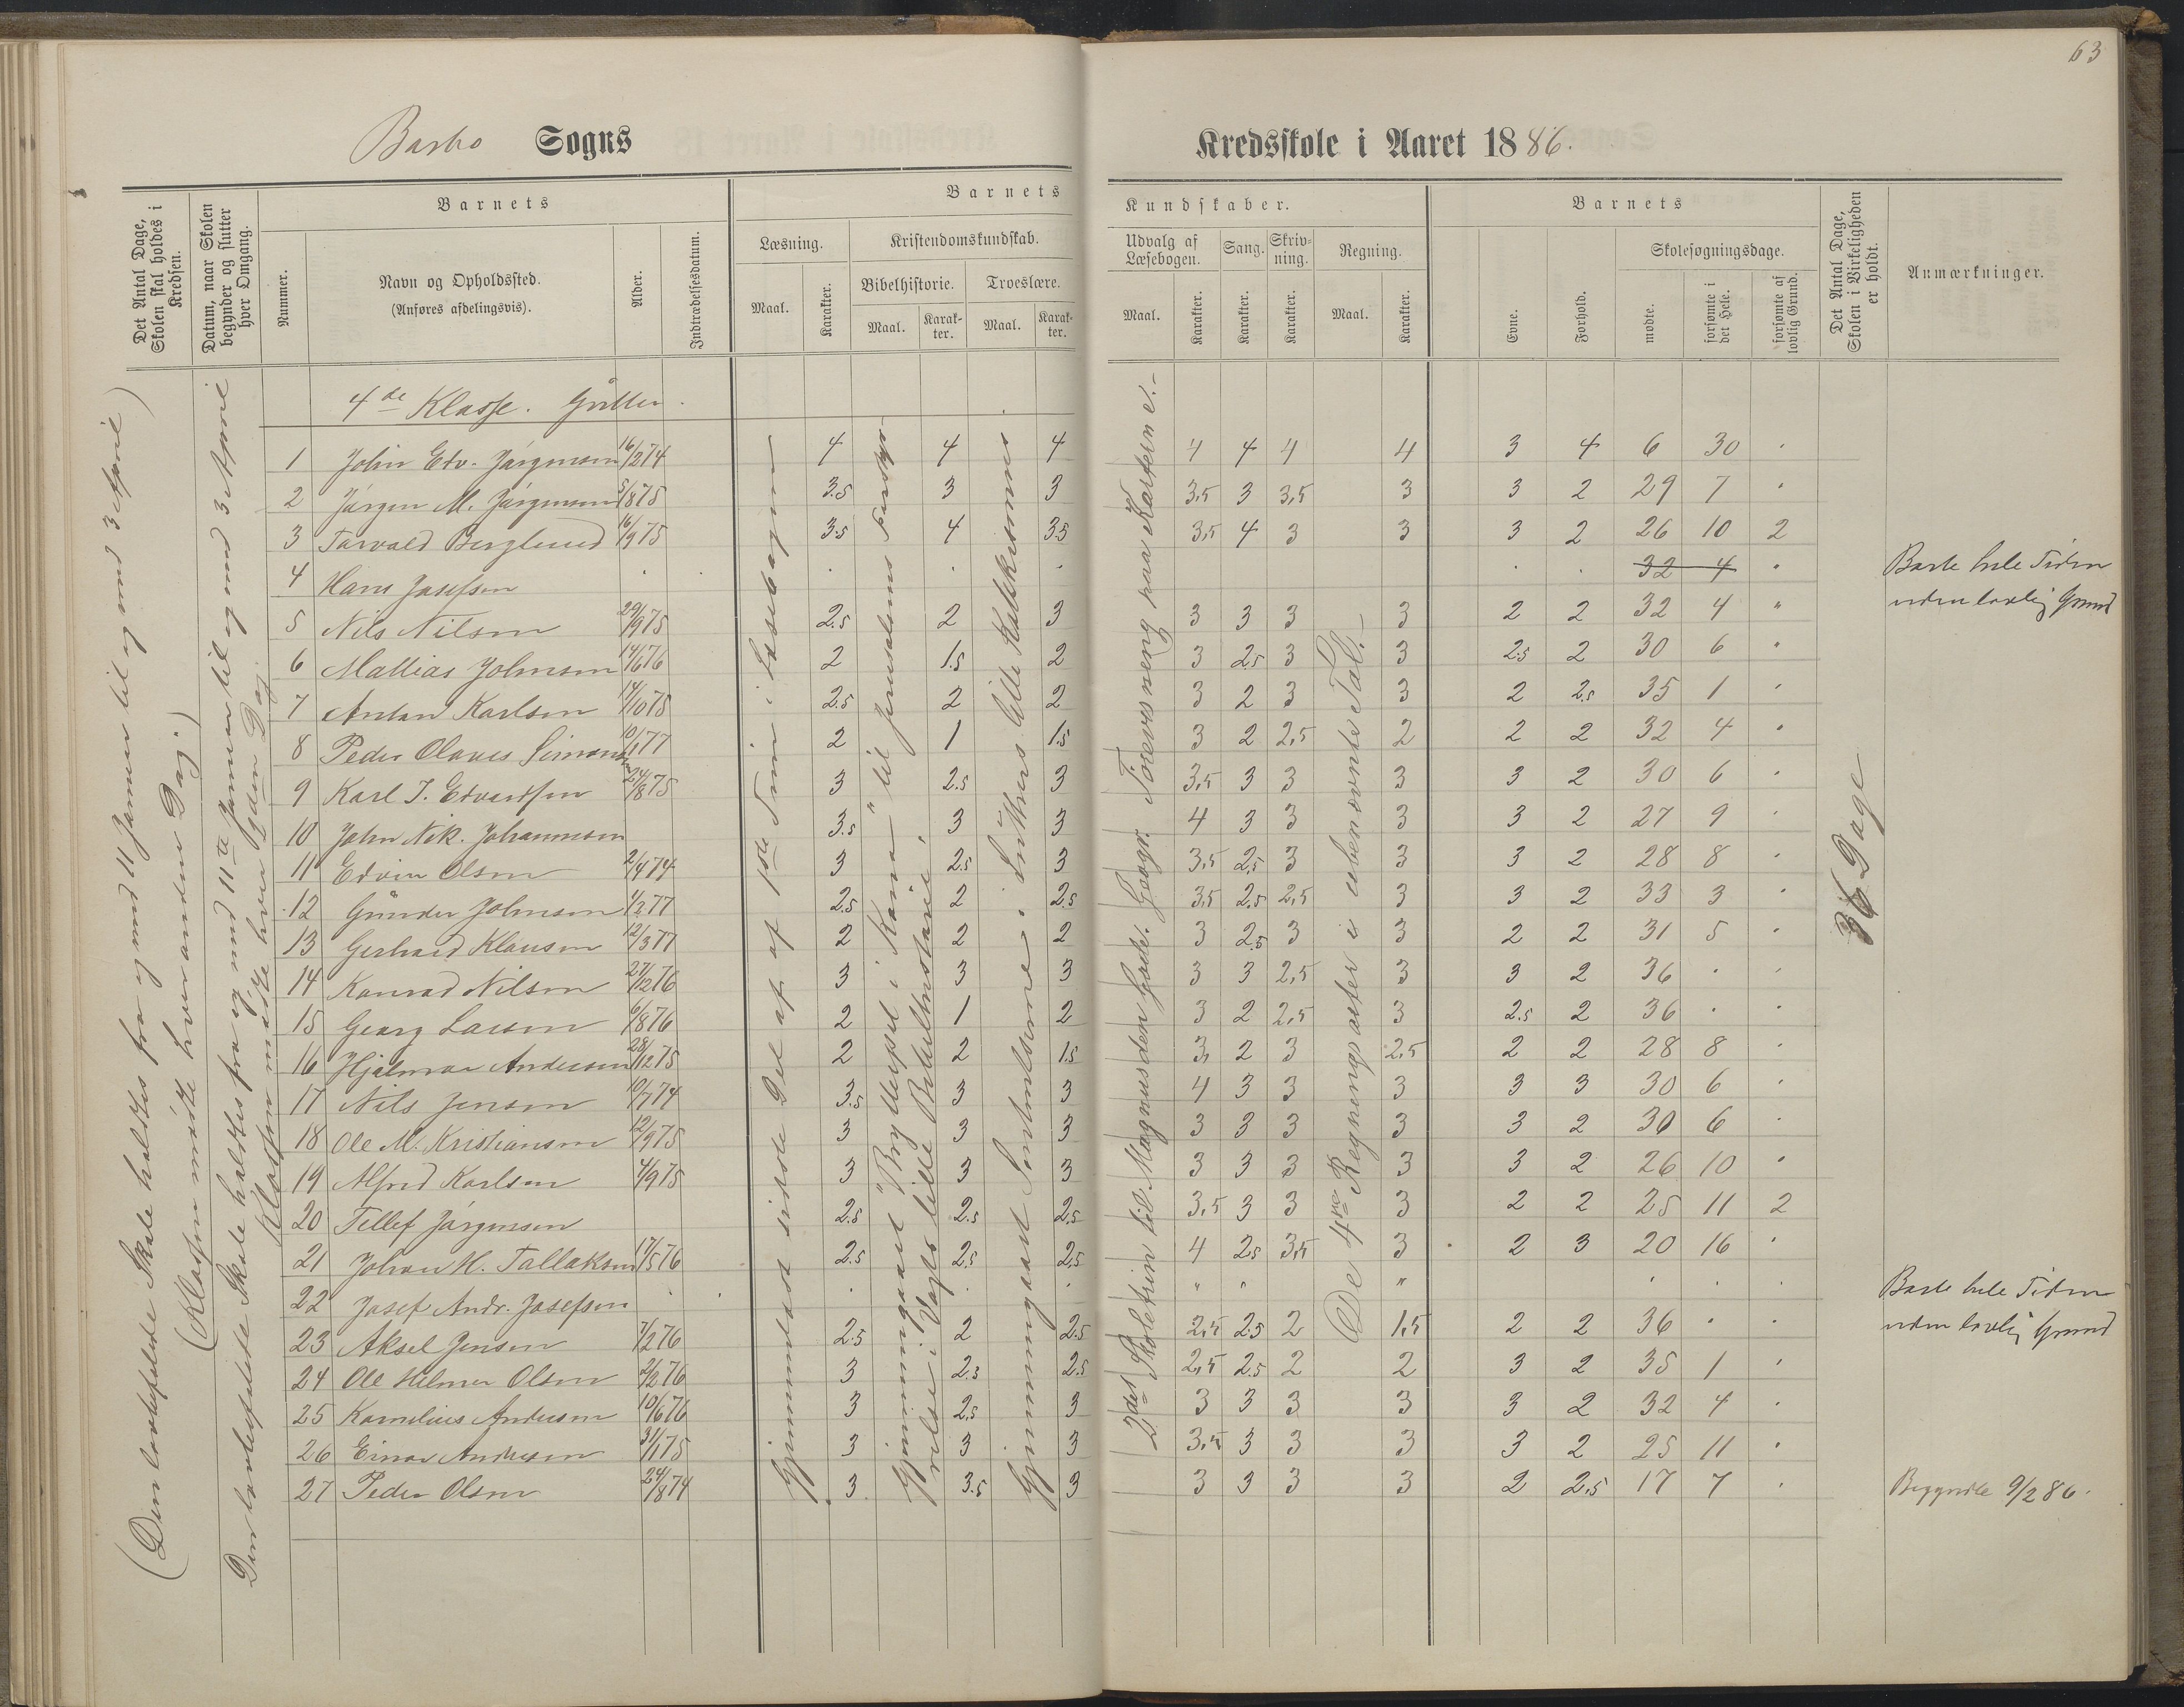 63
Barbo Sogns
Kredsskole i Aaret 1886.
Det Antal Dage, Skolen skal holdes i Kredsen.
Datum, naar Skolen begynder og slutter hver Omgang.
Nummer.
Barnets
Navn og Opholdssted.
(Anføres afdelingsvis).
Alder.
Indtrædelsesdatum.
Barnets
Læsning.
Maal.
Karakter.
Kristendomskundskab.
Bibelhistorie.
Maal.
Karakter.
Troeslære.
Maal.
Karakter.
Kundskaber.
Udvalg af Læsebogen.
Maal.
Karakter.
Sang.
Karakter.
Skrivning.
Karakter.
Regning.
Maal.
Karakter.
Barnets
Evne.
Forhold.
Skolesøgningsdage.
mødte.
forsømte i det Hele.
forsømte af lovlig Grund.
Det Antal Dage, Skolen i Virkeligheden er holdt.
Anmærkninger.
(Den lovbefalede Skole holdtes fra og med 11 Januar til og med 3 April)
(Klassen mødte hverandern Dag.)
Den lovbefalede Skole holdtes fra og med 11te Januar til og med 3 April
Klassen mødte hver anden Dag
Gjennemlæst sidste Del af 1ste Trin i Læsebogen
Gjennemgaaet "Bryllupset i Kana" til Jerusalems
i Vogts lille Bibelhistorie.
Gjennemgaaet i Luthers lille Katekismus
2det Skoletrin til Magnus den Gode. Geogr. Forevisning paa Kartern e.-
De 4re Regningsarter i ubenævnte Tal.-
36 Dage
4de Klasse. Gutter.
1 John Edv. Jørgensen 16/2 74 4 4 4 4 4 4 4 3 4 6 30 .
2 Jørgen M. Jørgensen 5/8 75 3.5 3 3 3,5 3 3,5 3 3 2 29 7 "
3 Torvald Berglund 16/9 75 3.5 4 3.5 3,5 4 3 3 3 2 26 10 2
4 Hans Josefsen . . . . . . 32 4 " Borte hele Tiden
uden lovlig Grund
5 Nils Nilsen 29/9 75 2.5 2 3 3 3 3 3 2 2 32 4 "
6 Mathias Johnsen 14/6 76 2 1.5 2 3 2.5 3 3 2.5 2 30 6 "
7 Anton Karlsen 14/10 75 2.5 2 2 3 2 3 3 2 2.5 35 1 .
8 Peder Olaves Simonsen 10/1 77 2 1 1.5 3 2 2,5 2 2 2 32 4 "
9 Karl J. Edvardsen 24/8 75 3 2.5 3 3,5 3 3 3 3 2 30 6 .
10 John Nik. Johannesen 3.5 3 3 4 3 3 3 3 2 27 9 .
11 Edvin Olsen 2/4 74 3 2.5 3 3,5 2,5 3 3 3 2 28 8 .
12 Gunder Johnsen 1/2 77 2.5 2 2.5 3,5 2.5 2,5 3 3 2 33 3 .
13 Gerhard Klausen 12/3 77 2 2 2 3 2.5 3 3 2 2 31 5 .
14 Konrad Nilsen 27/12 76 3 3 3 3 3 2,5 3 3 2 36 . .
15 Georg Larsen 6/8 76 2 1 2 3 2 2,5 3 2.5 2 36 . .
16 Hjalmar Andersen 28/12 75 2 2 1.5 3, 2 3 2,5 2 2 28 8 .
17 Nils Jensen 10/7 74 3.5 3 3 4 3 3 3 3 3 30 6 .
18 Ole M. Kristiansen 12/9 75 3 3 3 3 3 3 3 3 2 30 6 .
19 Alfred Karlsen 4/9 75 3 3 3 3 3 3 3 3 2 26 10 "
20 Tellef Jørgensen 2.5 2.5 2.5 3,5 3 3 3 2 2 25 11 2
21 Johan H. Tallaksen 17/5 76 2.5 2.5 2.5 4 2.5 3,5 3 2 3 20 16 .
22 Josef Andr. Josefsen . . . . . " " " . . . Borte hele Tiden
uden lovlig Grund
23 Aksel Jensen 7/2 76 2.5 2 2.5 2,5 2.5 2 1,5 2 2 36 " .
24 Ole Helmer Olsen 2/2 76 3 2.5 2.5 2,5 2.5 2 2 3 2 35 1 .
25 Kornelius Andersen 10/6 76 3 2.5 3 3 3 3 3 3 2 32 4 .
26 Einar Andresen 31/1 75 3 3 3 3,5 3 3 3 3 2 25 11 "
27 Peder Olsen 24/8 74 3 3.5 3 3 3 3 3 2 2,5 17 7 . Begyndte 9/2 86.